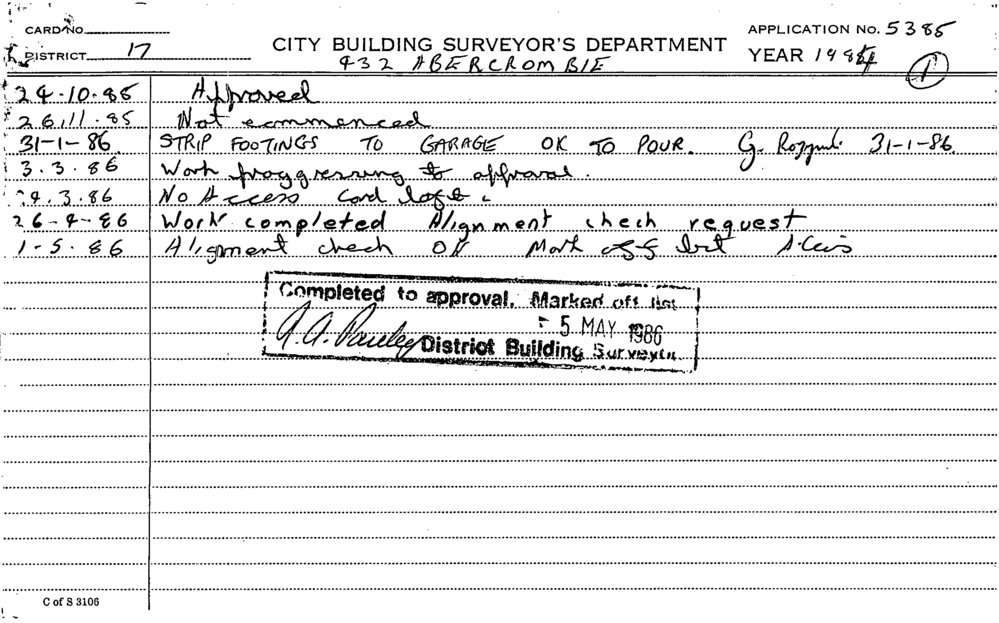 CARD NO.
APPLICATION No. 5385
DISTRICT 17
CITY BUILDING SURVEYOR'S DEPARTMENT
YEAR 1985
432 ABERCROMBIE
1
24.10.85 Approved
26.11.85 Not commenced
31-1-86 STRIP FOOTINGS TO GARAGE OK TO POUR. G. 31-1-86.
3.3.86 Work proggressing to approval.
.3.86 No Access Card left
26-4-86 Work completed Alignment chech request
1-5.86 Alignment chech OK Mark off list
Completed to approval. Marked off list
5 MAY 1986
District Building Surveyor.
C of S 3106